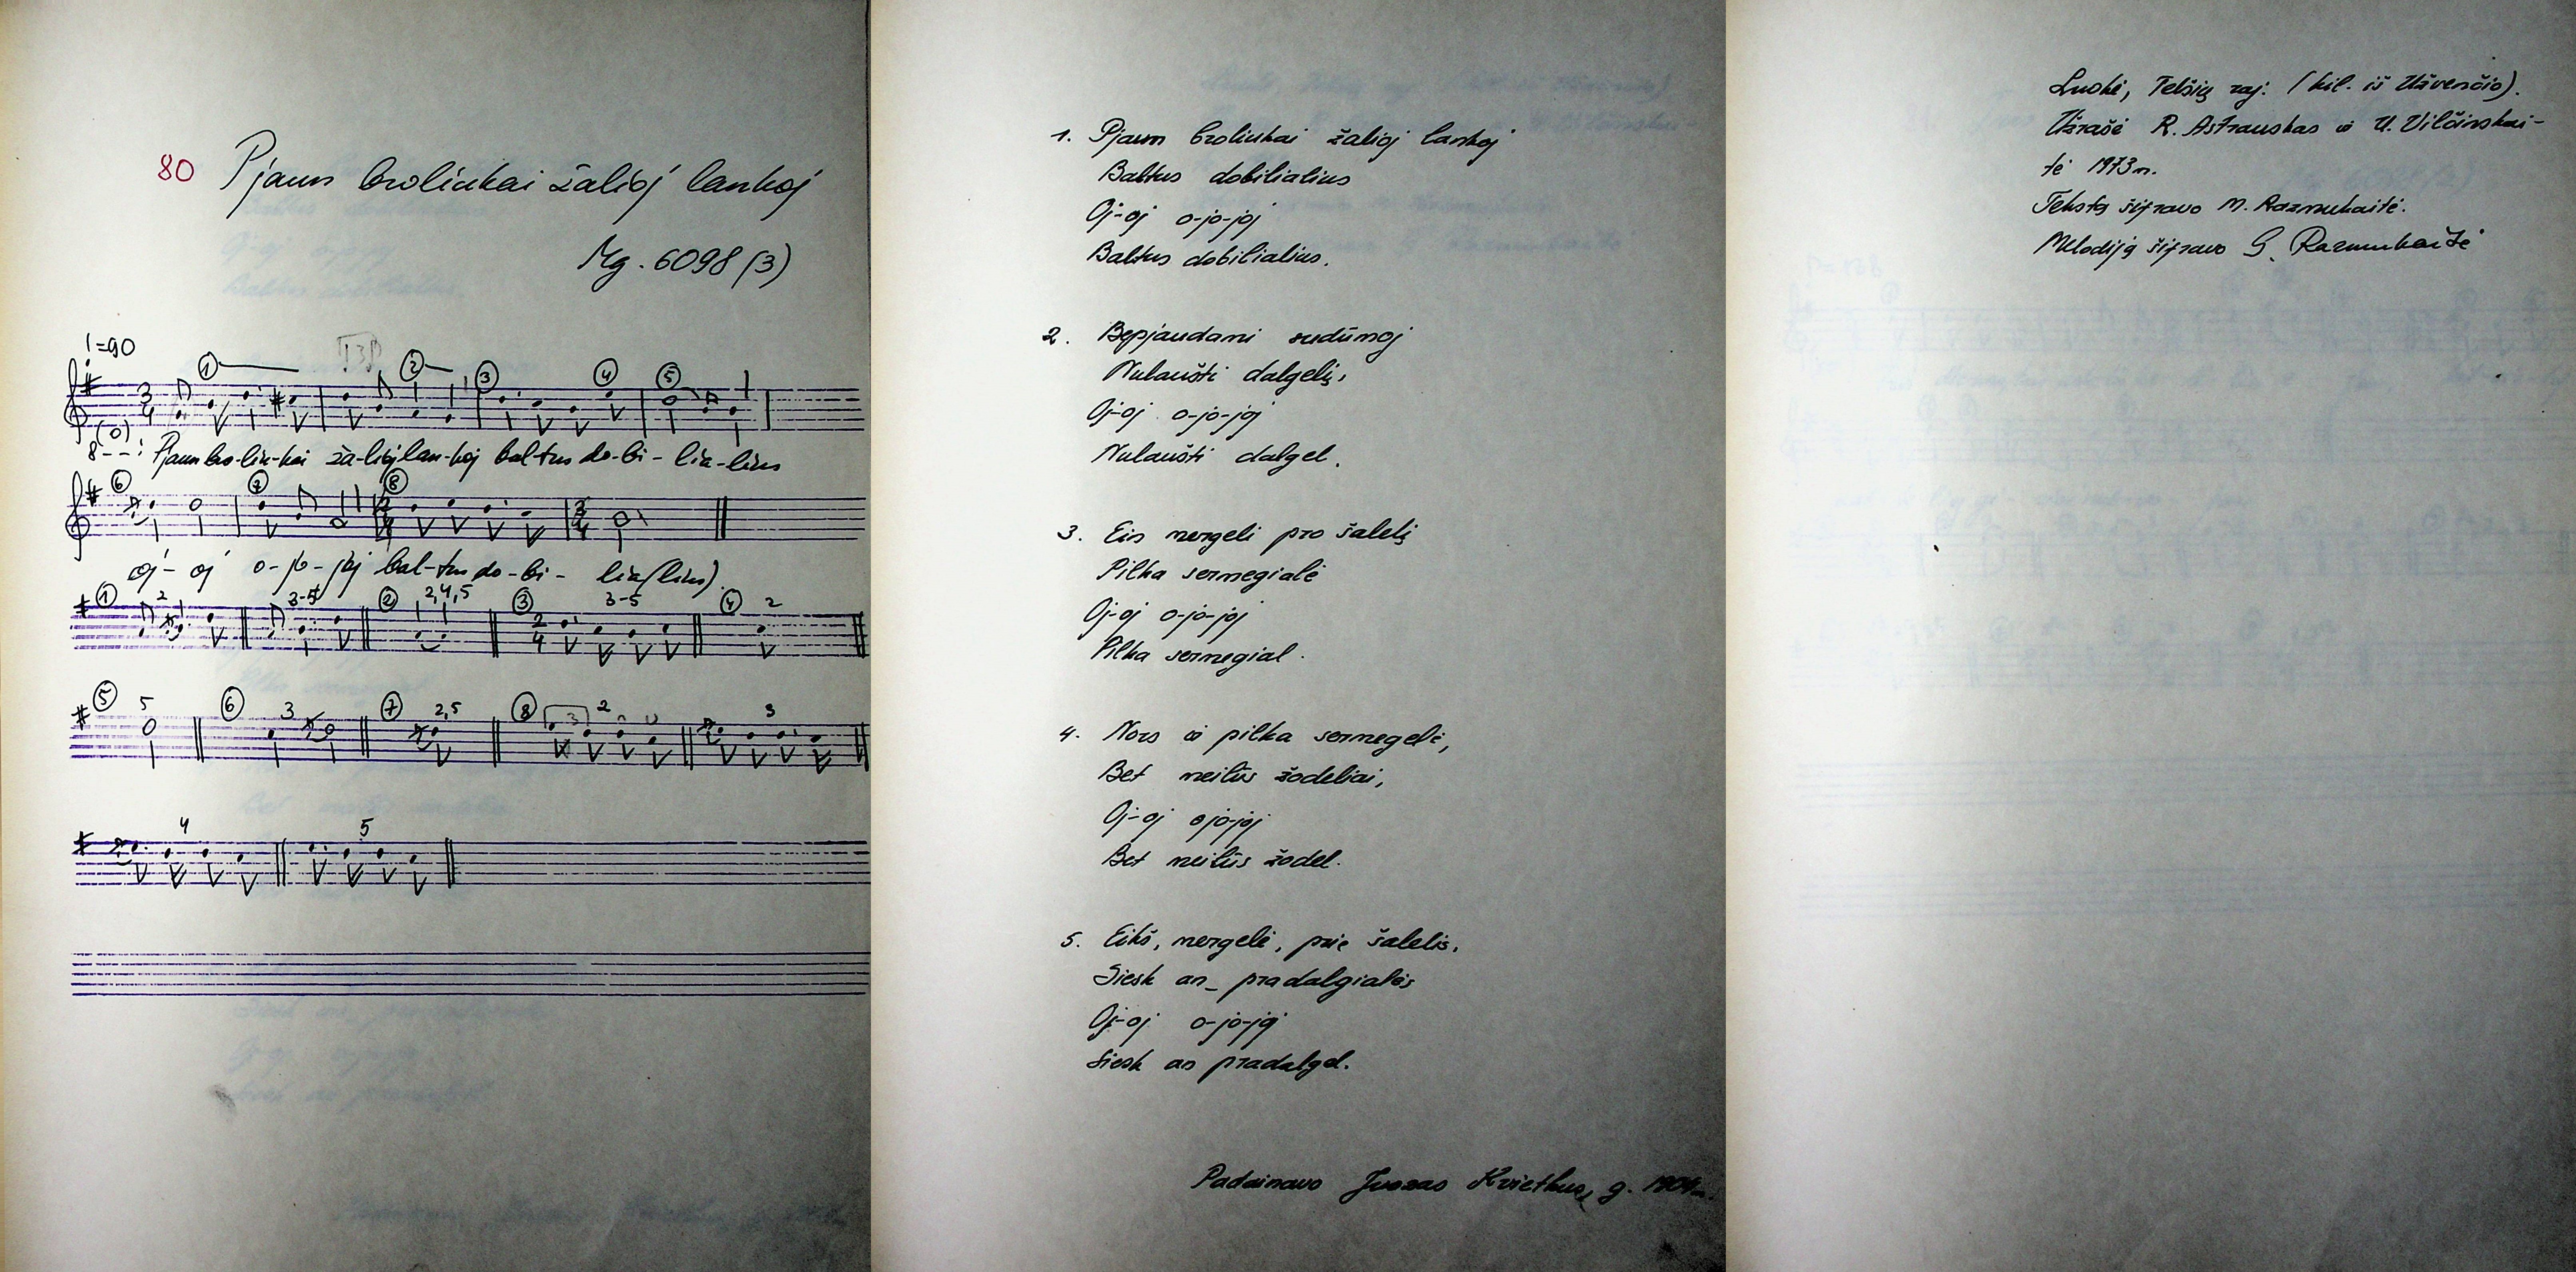 80 Pjaun broliukai žalioj lankoj
Mg. 6098 (3)
=90
1 2 3 4 5
3 4
8
Pjaun bro-liu-kai ža-lioj lan-koj bal-tus do-bi-lia-lius
6 7 8
2 4 3 4
oj-oj o-jo-joj bal-tus do-bi-lia(lius)
1 2 3-5 2 2,4,5 3 3-5 4 2
2 4
5 5 6 3 7 2,5 8 3 2 3
4 5
1. Pjaun broliukai žalioj lankoj
Baltus dobilialius
Oj-oj o-jo-joj
Baltus dobilialius.
2. Bepjaudami sudūmoj
Nulaušti dalgelį,
Oj-oj o-jo-joj
Nulaušti dalgel.
3. Ein mergeli pro šalelį
Pilka sermegialė
Oj-oj o-jo-joj
Pilka sermegial.
4. Nors ir pilka sermegelė,
Bet meilūs žodeliai,
Oj-oj ojo-joj
Bet meilūs žodel.
5. Eikš, mergelė, prie šalelis,
Siesk an_ pradalgialės
Oj-oj o-jo-joj
Siesk an pradalgel.
Padainavo Juozas Kvietkus, g.
Luokė, Telšių raj. (kil. iš Užvenčio).
Užrašė R. Astrauskas ir U. Vilčinskai-
tė 1973 m.
Tekstą šifravo M. Razmukaitė.
Melodiją šifravo G. Razmukaitė